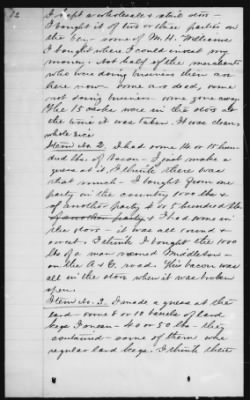 I kept a wholesale & retail store -
I bought it of two or three parties in
the Co - some of M. H. Williams
I bought where I could invest my
money. Not half of the merchants
who were doing business then are
here now - some are dead, some
not doing business - some gone away.
The 15 sacks were in the store at
the time it was taken. It was clean
whole rice
Item No. 2. I had some 14 or 15 hun
dred lbs of Bacon - I just make a
guess at it, I think there was
that much - I bought from one
party in the country 1000 lbs &
of another party 4 or 5 hundred lbs
of another party & I had some in
the store - it was all sound &
sweet. I think I bought the 1000
lbs of a man near Middleton -
on the A & G. road. This bacon was
all in the store when it was broken
open.
Item No. 3. I made a guess at the
lard - some 8 or 10 barrels of land
kegs I mean - 40 or 50 lbs - they
contained - some of them were
regular lard kegs. I think there